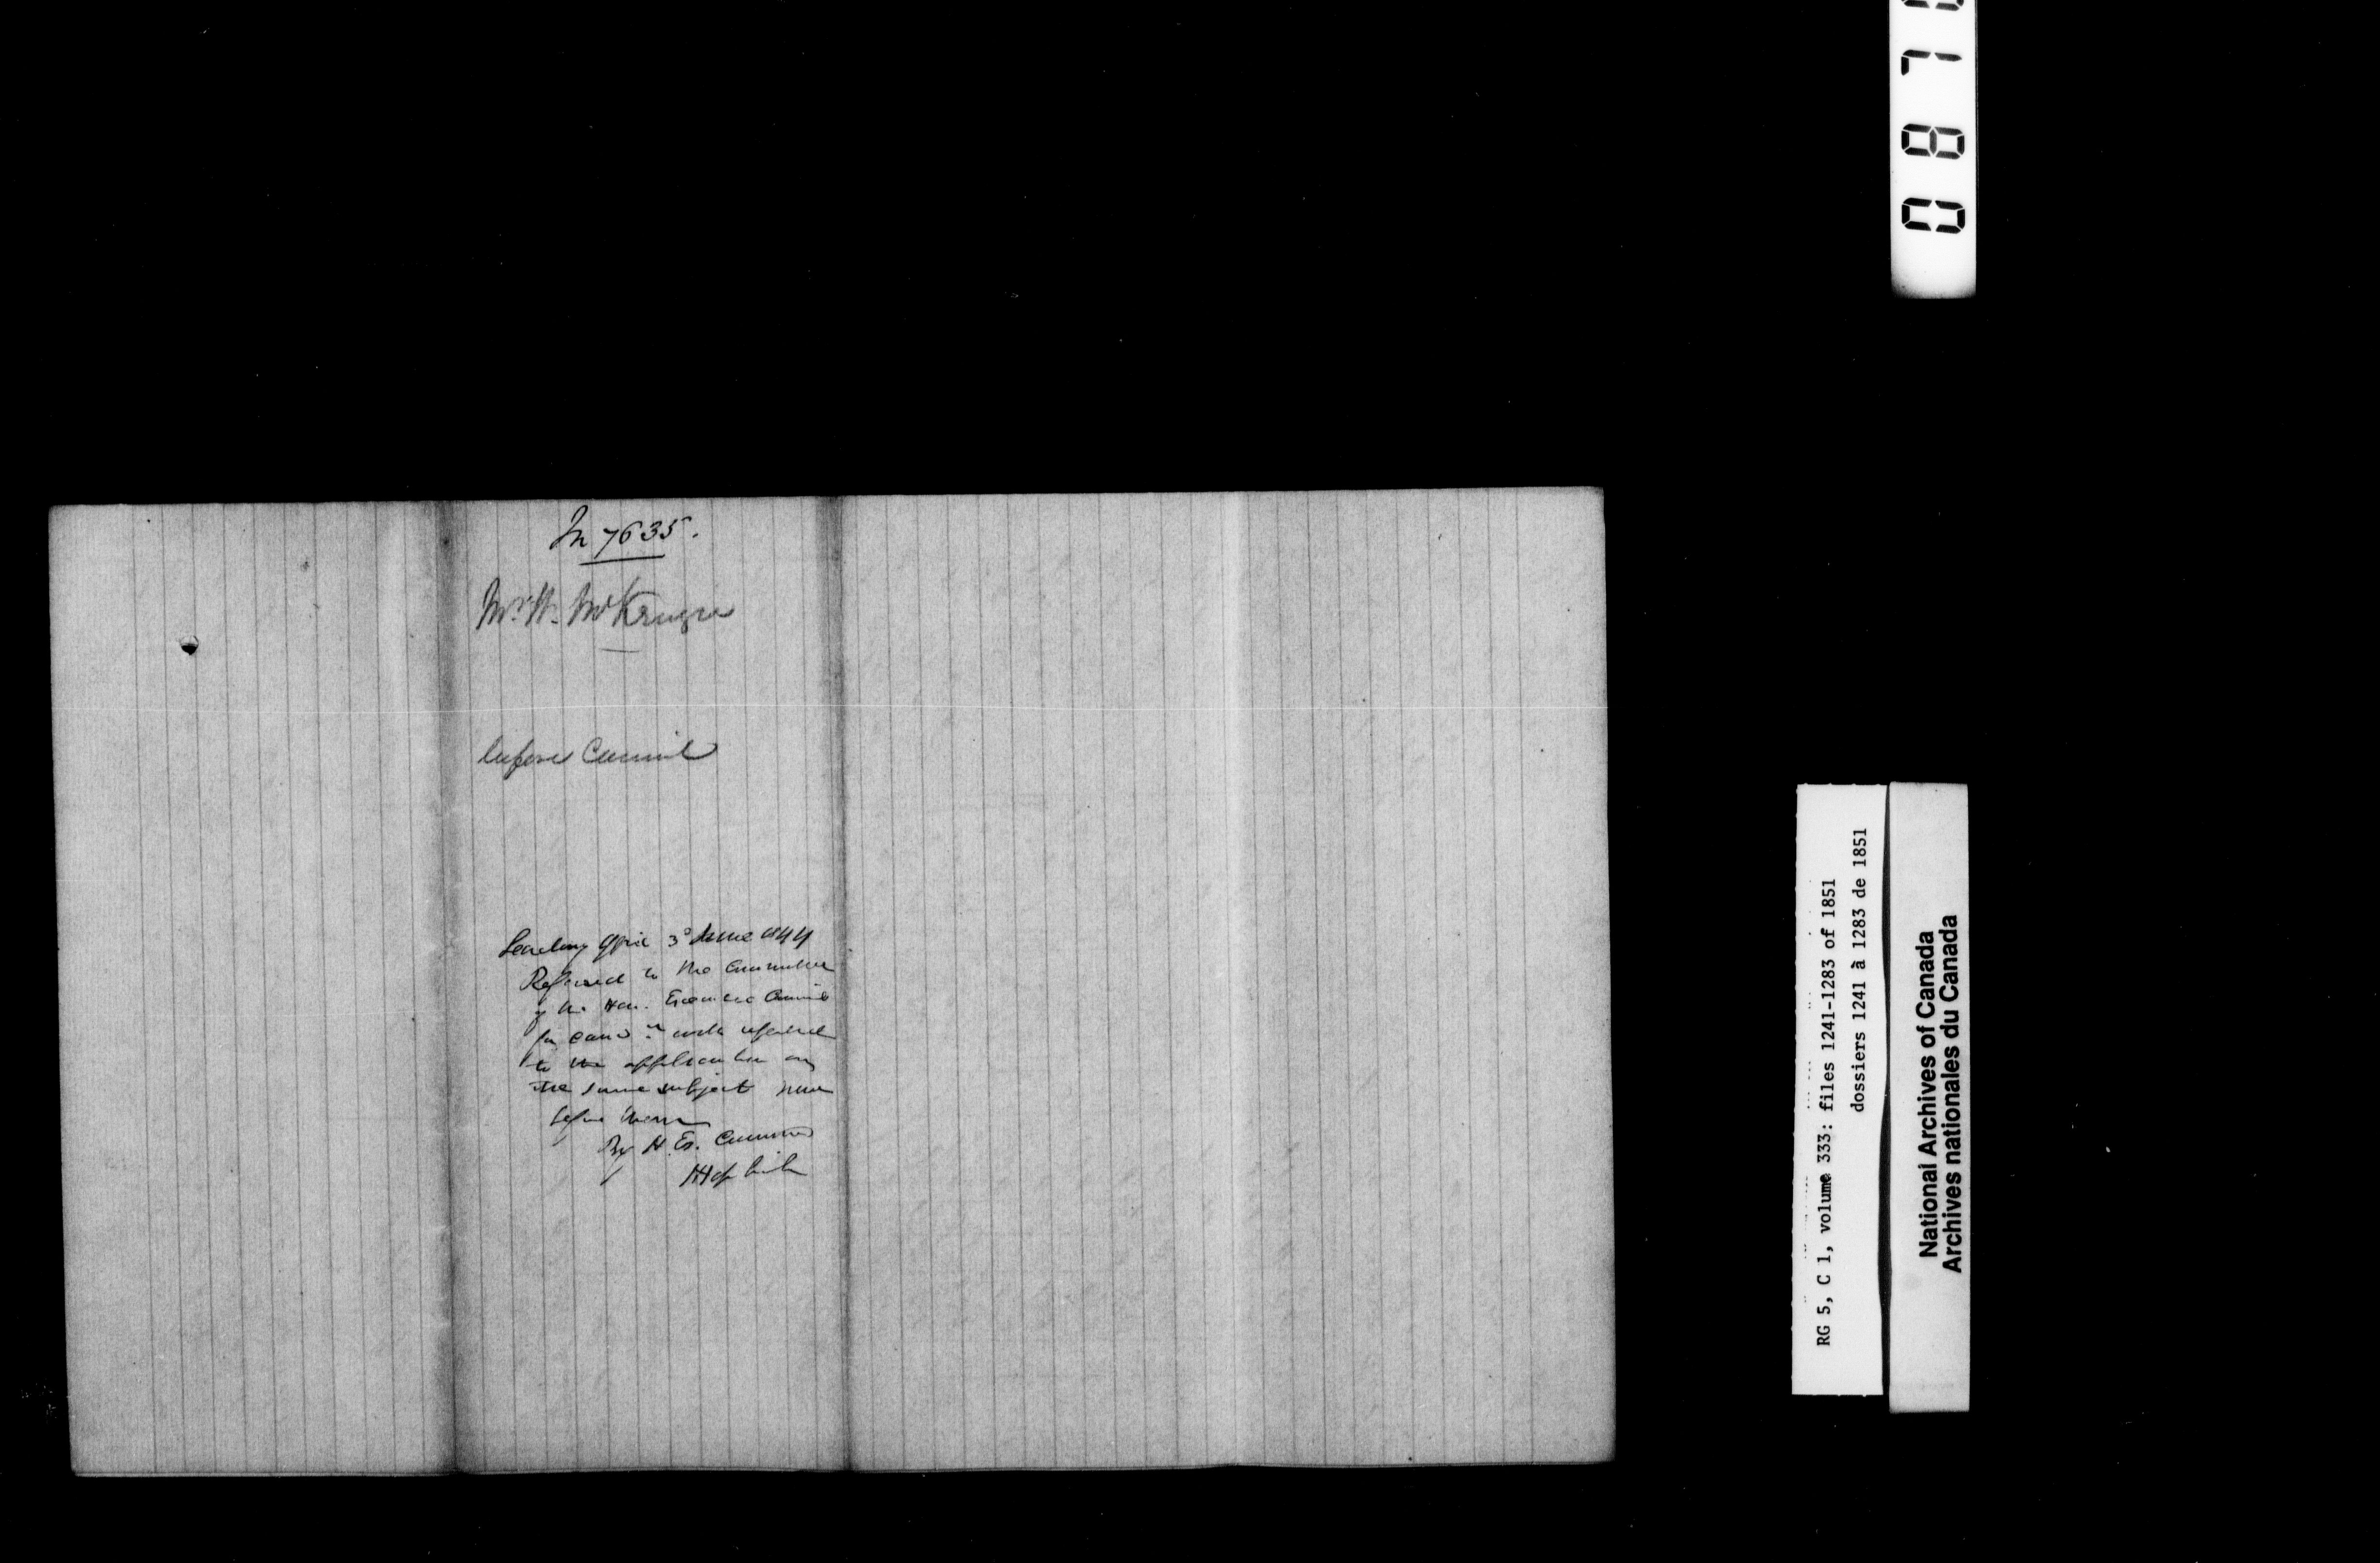 In 7635.
Mr. H. McKenzie
before Council
Secretary Office 3d June 1844
Referred to the Committee
of the Hon. Executive Council
for con with reference
to the application on
the same subject now
before them
By H. Ex. Command
0 8 7
RG 5, C 1, volume 333: files 1241-1283 of 1851
dossiers 1241 à 1283 de 1851
National Archives of Canada
Archives nationales du Canada